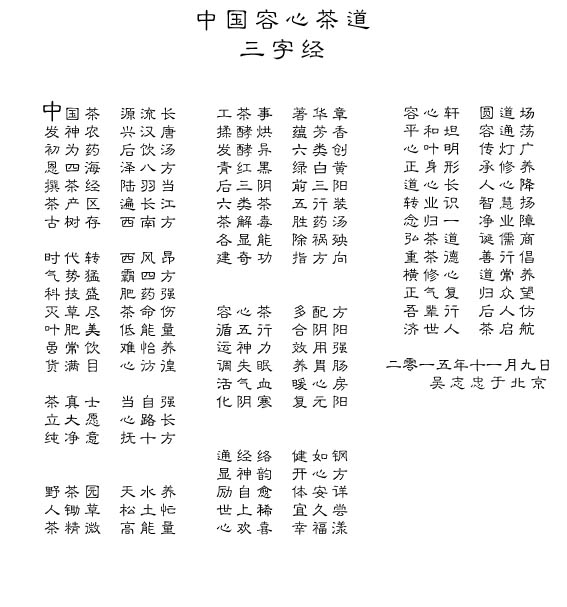 中国容心茶道
三字经
中国茶 源流长
发神农 兴汉唐
初为药 后饮汤
恩四海 泽八方
撰茶经 陆羽当
茶产区 遍长江
古树存 西南方
时代转 西风昂
气势猛 霸四方
科技盛 肥药强
灭草尽 茶命伤
叶肥美 低能量
虽常饮 难怡养
货满目 心访徨
茶真士 当自强
立大愿 心路长
纯净意 抚十方
野茶园 天水养
人锄草 松土忙
茶精微 高能量
工茶事 著华章
揉酵烘 蕴芳香
发酵异 六类创
青红黑 绿白黄
后三阴 前三阳
六类茶 五行装
茶解毒 胜药汤
各显能 除祸殃
建奇功 指方向
容心茶 多配方
循五行 合阴阳
运神力 效用强
调失眠 养胃肠
活气血 暖心房
化阴寒 复元阳
通经络 健如钢
显神韵 开心方
励自愈 体安详
世上稀 宜久尝
心欢喜 幸福漾
容心轩 圆道场
平和坦 容通荡
心叶明 传灯广
正身形 承修养
道心长 人心降
转业识 智慧扬
念归一 净业障
弘茶道 诞儒商
重茶德 善行倡
横修心 道常养
正气复 归众望
吾辈行 后人仿
济世人 茶启航
二零一五年十一月九日
吴志忠于北京